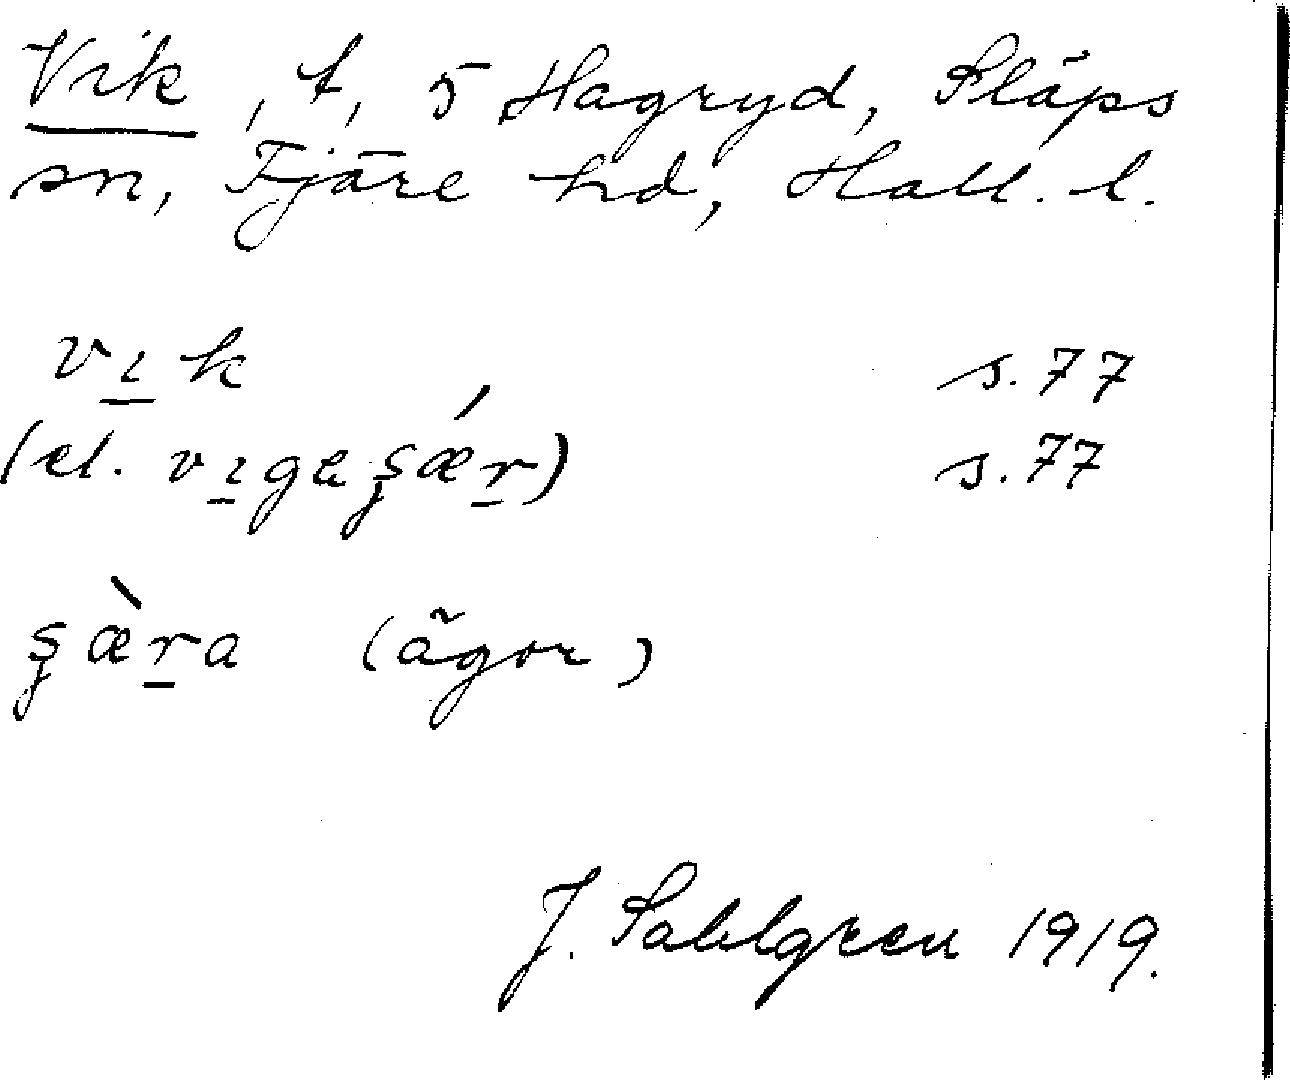 Vik, t, 5 Hagryd, Släps
sn, Fjäre hd, Hall. l.
vɩ̱k s.77
(el. vɩ̱geʂǽṟ) s.77
ʂæ̀ṟa (ägor)
J. Sahlgren 1919.